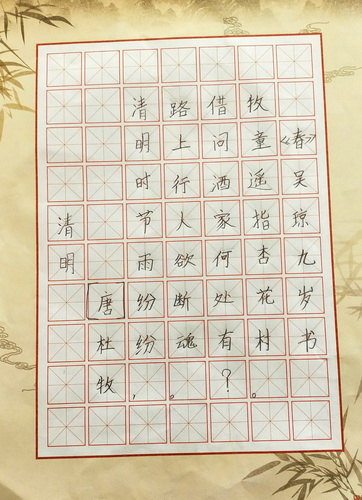 清明
[唐]杜牧
清明时节雨纷纷,
路上行人欲断魂。
借问酒家何处有?
牧童遥指杏花村。
《春》吴琼九岁书